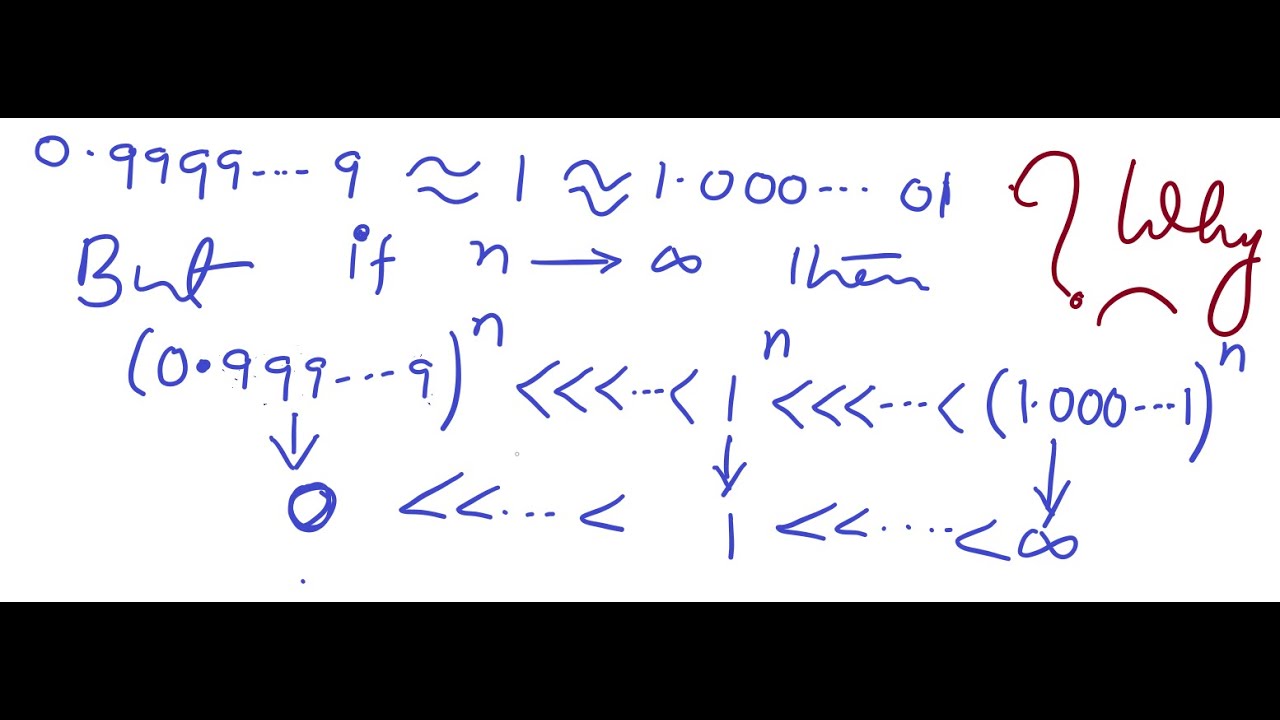 0.9999....9 ≈ 1 ≈ 1.000...01 ? Why
But if n → ∞ then
(0.999...9)ⁿ <<<...< 1ⁿ <<<...< (1.000...1)ⁿ
↓ ↓ ↓
0 <<....< 1 <<....< ∞